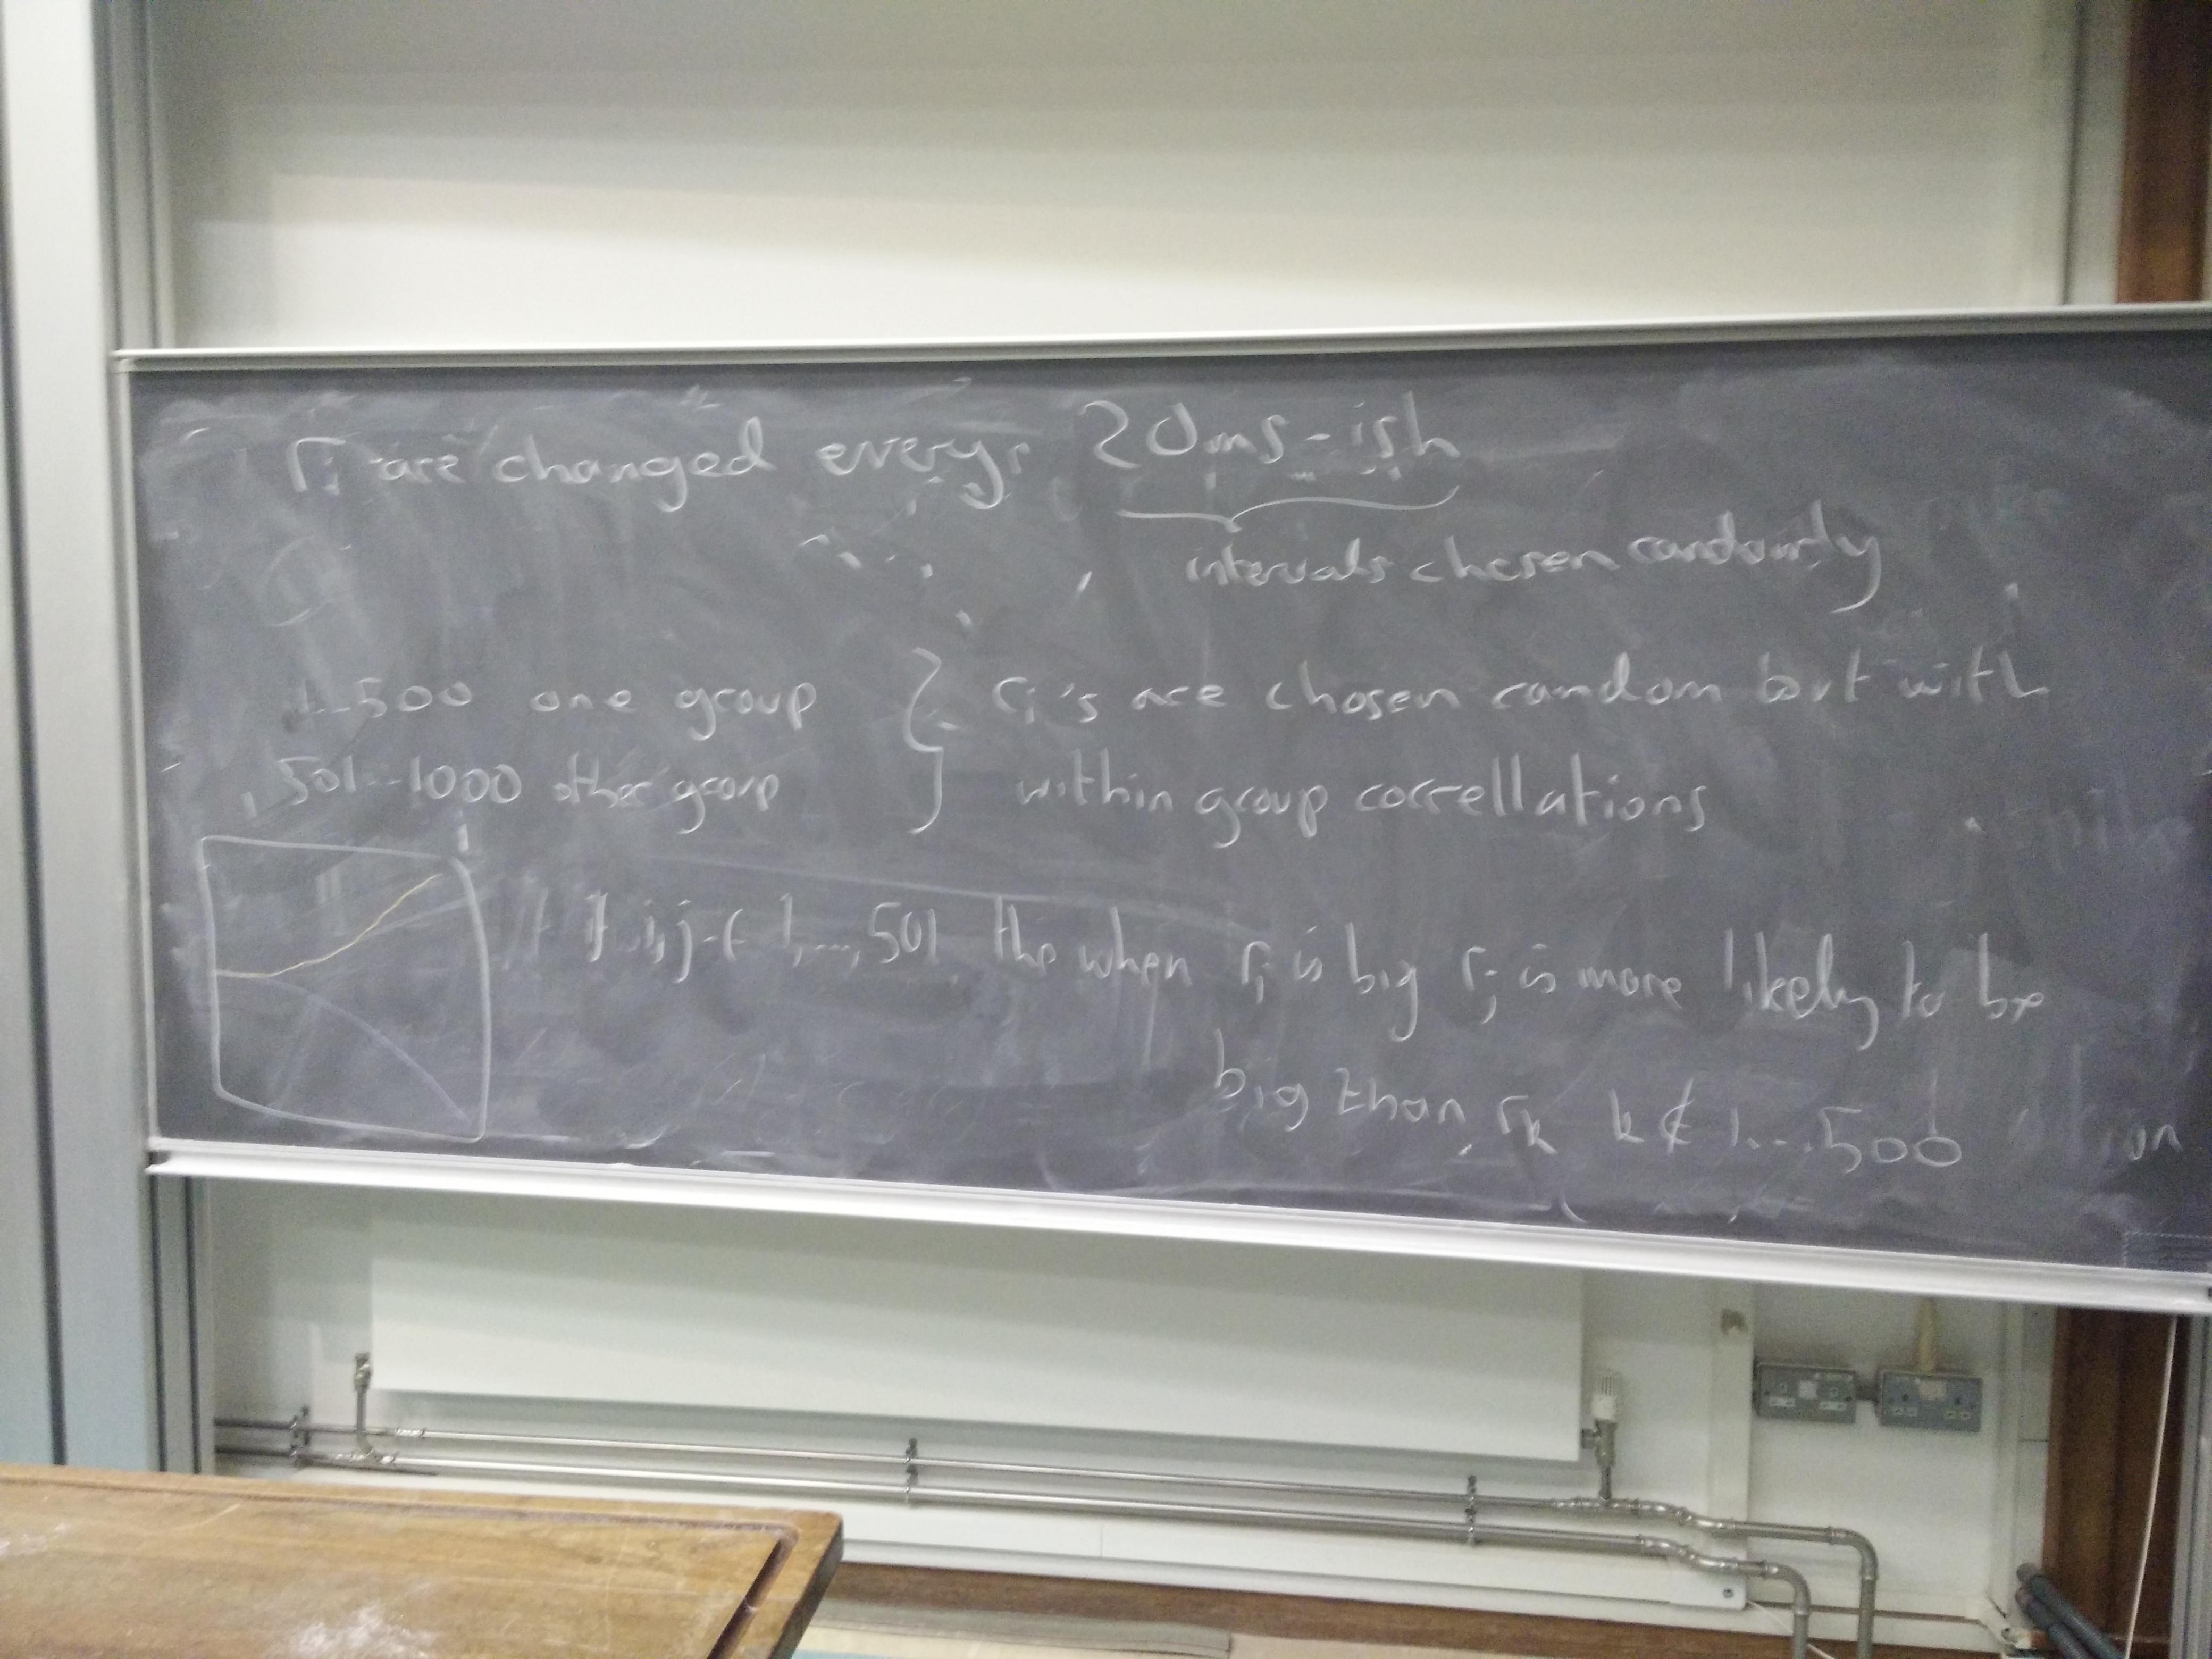 ri are changed every 20ms-ish
intervals chosen randomly
1..500 one group
ri's are chosen random but with
501...1000 other group
within group correllations
if i,j ∈ 1,...,501 the when ri is big rj is more likely to be
big than rk k ∉ 1...500